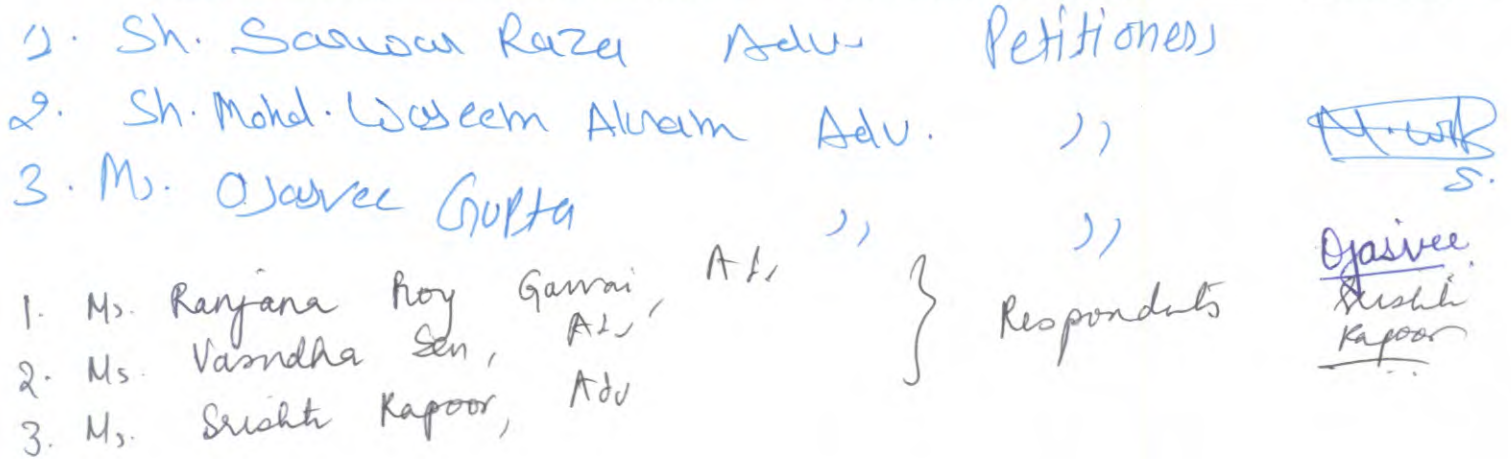 1. Sh. Sarwar Raza Adv. Petitioners
2. Sh. Mohd. Waseem Akram Adv. ,,
S.
3. Ms. Ojasvee Gupta ,, ,,
Ojasvee
1. Ms. Ranjana Roy Gawai, Adv
2. Ms. Vasudha Sen, Adv
3. Ms. Srishti Kapoor, Adv
} Respondents
Srishti
Kapoor